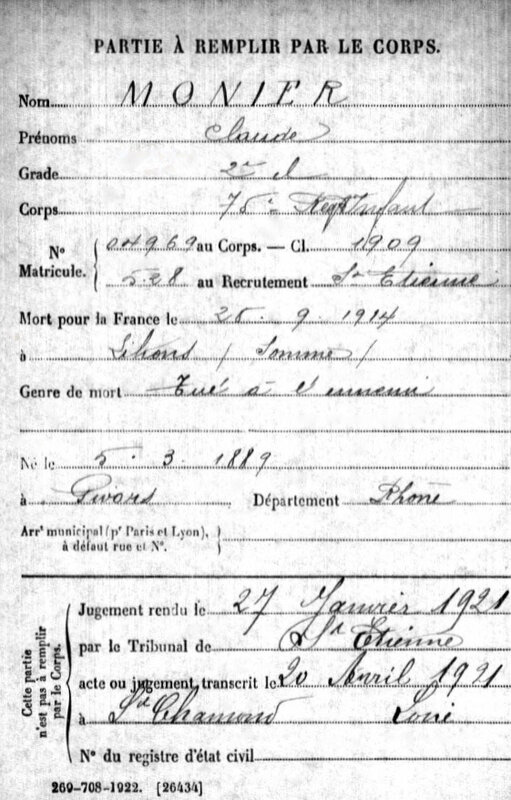 PARTIE À REMPLIR PAR LE CORPS.
Nom MONIER
Prénoms Claude
Grade 2e cl
Corps 75e Regt Infant
N° Matricule. 04969 au Corps. — Cl. 1909
528 au Recrutement St Etienne
Mort pour la France le 25 . 9 . 1914
à Lihons (Somme)
Genre de mort Tué à l'ennemi
Né le 5 . 3 . 1889
à Givors Département Rhône
Arrt municipal (pr Paris et Lyon),
à défaut rue et N°.
Cette partie n'est pas à remplir par le Corps.
Jugement rendu le 27 Janvier 1921
par le Tribunal de St Etienne
acte ou jugement transcrit le 20 Avril 1921
à St Chamond Loire
N° du registre d'état civil
269-708-1922. [26434]